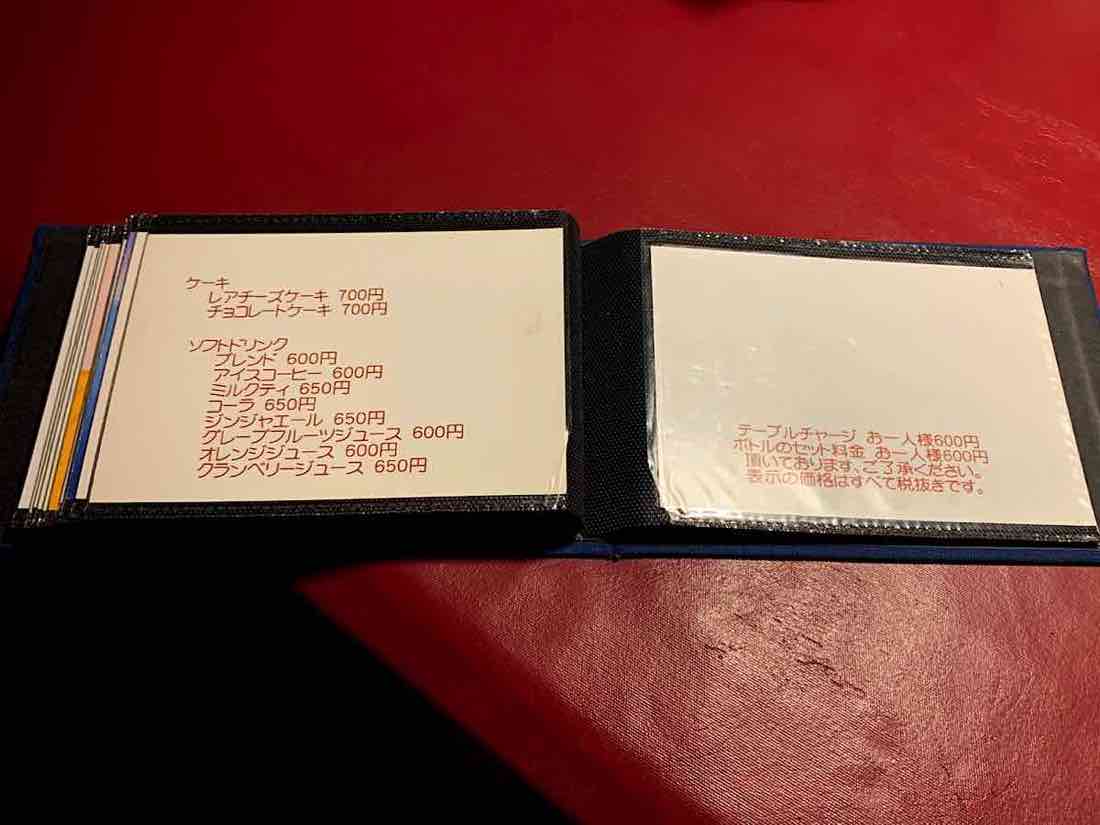 ケーキ
レアチーズケーキ 700円
チョコレートケーキ 700円
ソフトドリンク
ブレンド 600円
アイスコーヒー 600円
ミルクティ 650円
コーラ 650円
ジンジャエール 650円
グレープフルーツジュース 600円
オレンジジュース 600円
クランベリージュース 650円
テーブルチャージ お一人様600円
ボトルのセット料金 お一人様600円
頂いております、ご了承ください。
表示の価格はすべて税抜きです。